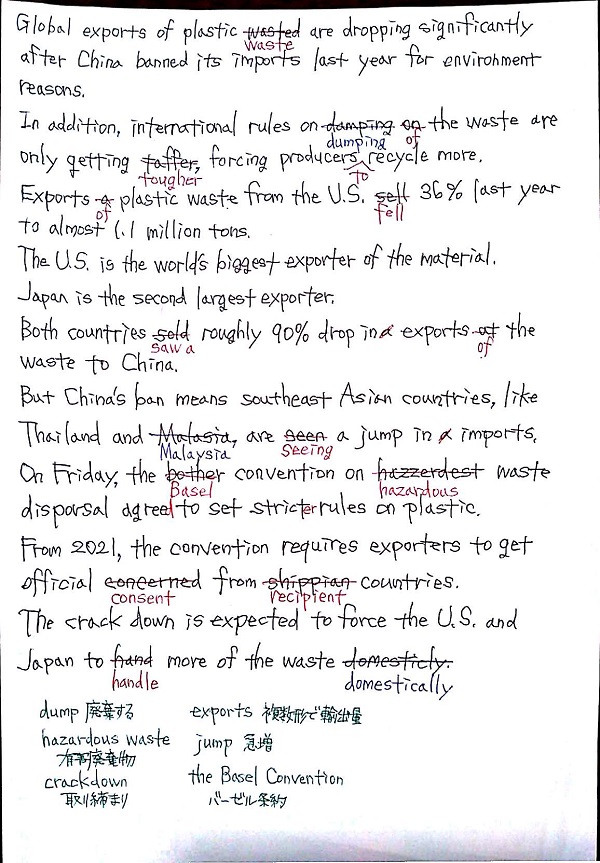 Global exports of plastic wasted are dropping significantly
waste
after China banned its imports last year for environment
reasons.
In addition, international rules on damping on the waste are
dumping of
only getting taffer, forcing producers recycle more.
tougher to
Exports a plastic waste from the U.S. sell 36% last year
of fell
to almost 1.1 million tons.
The U.S. is the world's biggest exporter of the material.
Japan is the second largest exporter.
Both countries sold roughly 90% drop in a exports at the
saw a of
waste to China.
But China's ban means southeast Asian countries, like
Thailand and Malasia, are seen a jump in a imports.
Malaysia seeing
On Friday, the bother convention on hazzerdest waste
Basel hazardous
disporsal agreed to set stricter rules on plastic.
From 2021, the convention requires exporters to get
official concerned from shippian countries.
consent recipient
The crack down is expected to force the U.S. and
Japan to hand more of the waste domesticly.
handle domestically
dump 廃棄する exports 複数形で輸出量
hazardous waste jump 急増
有害廃棄物
crackdown the Basel Convention
取り締まり バーゼル条約